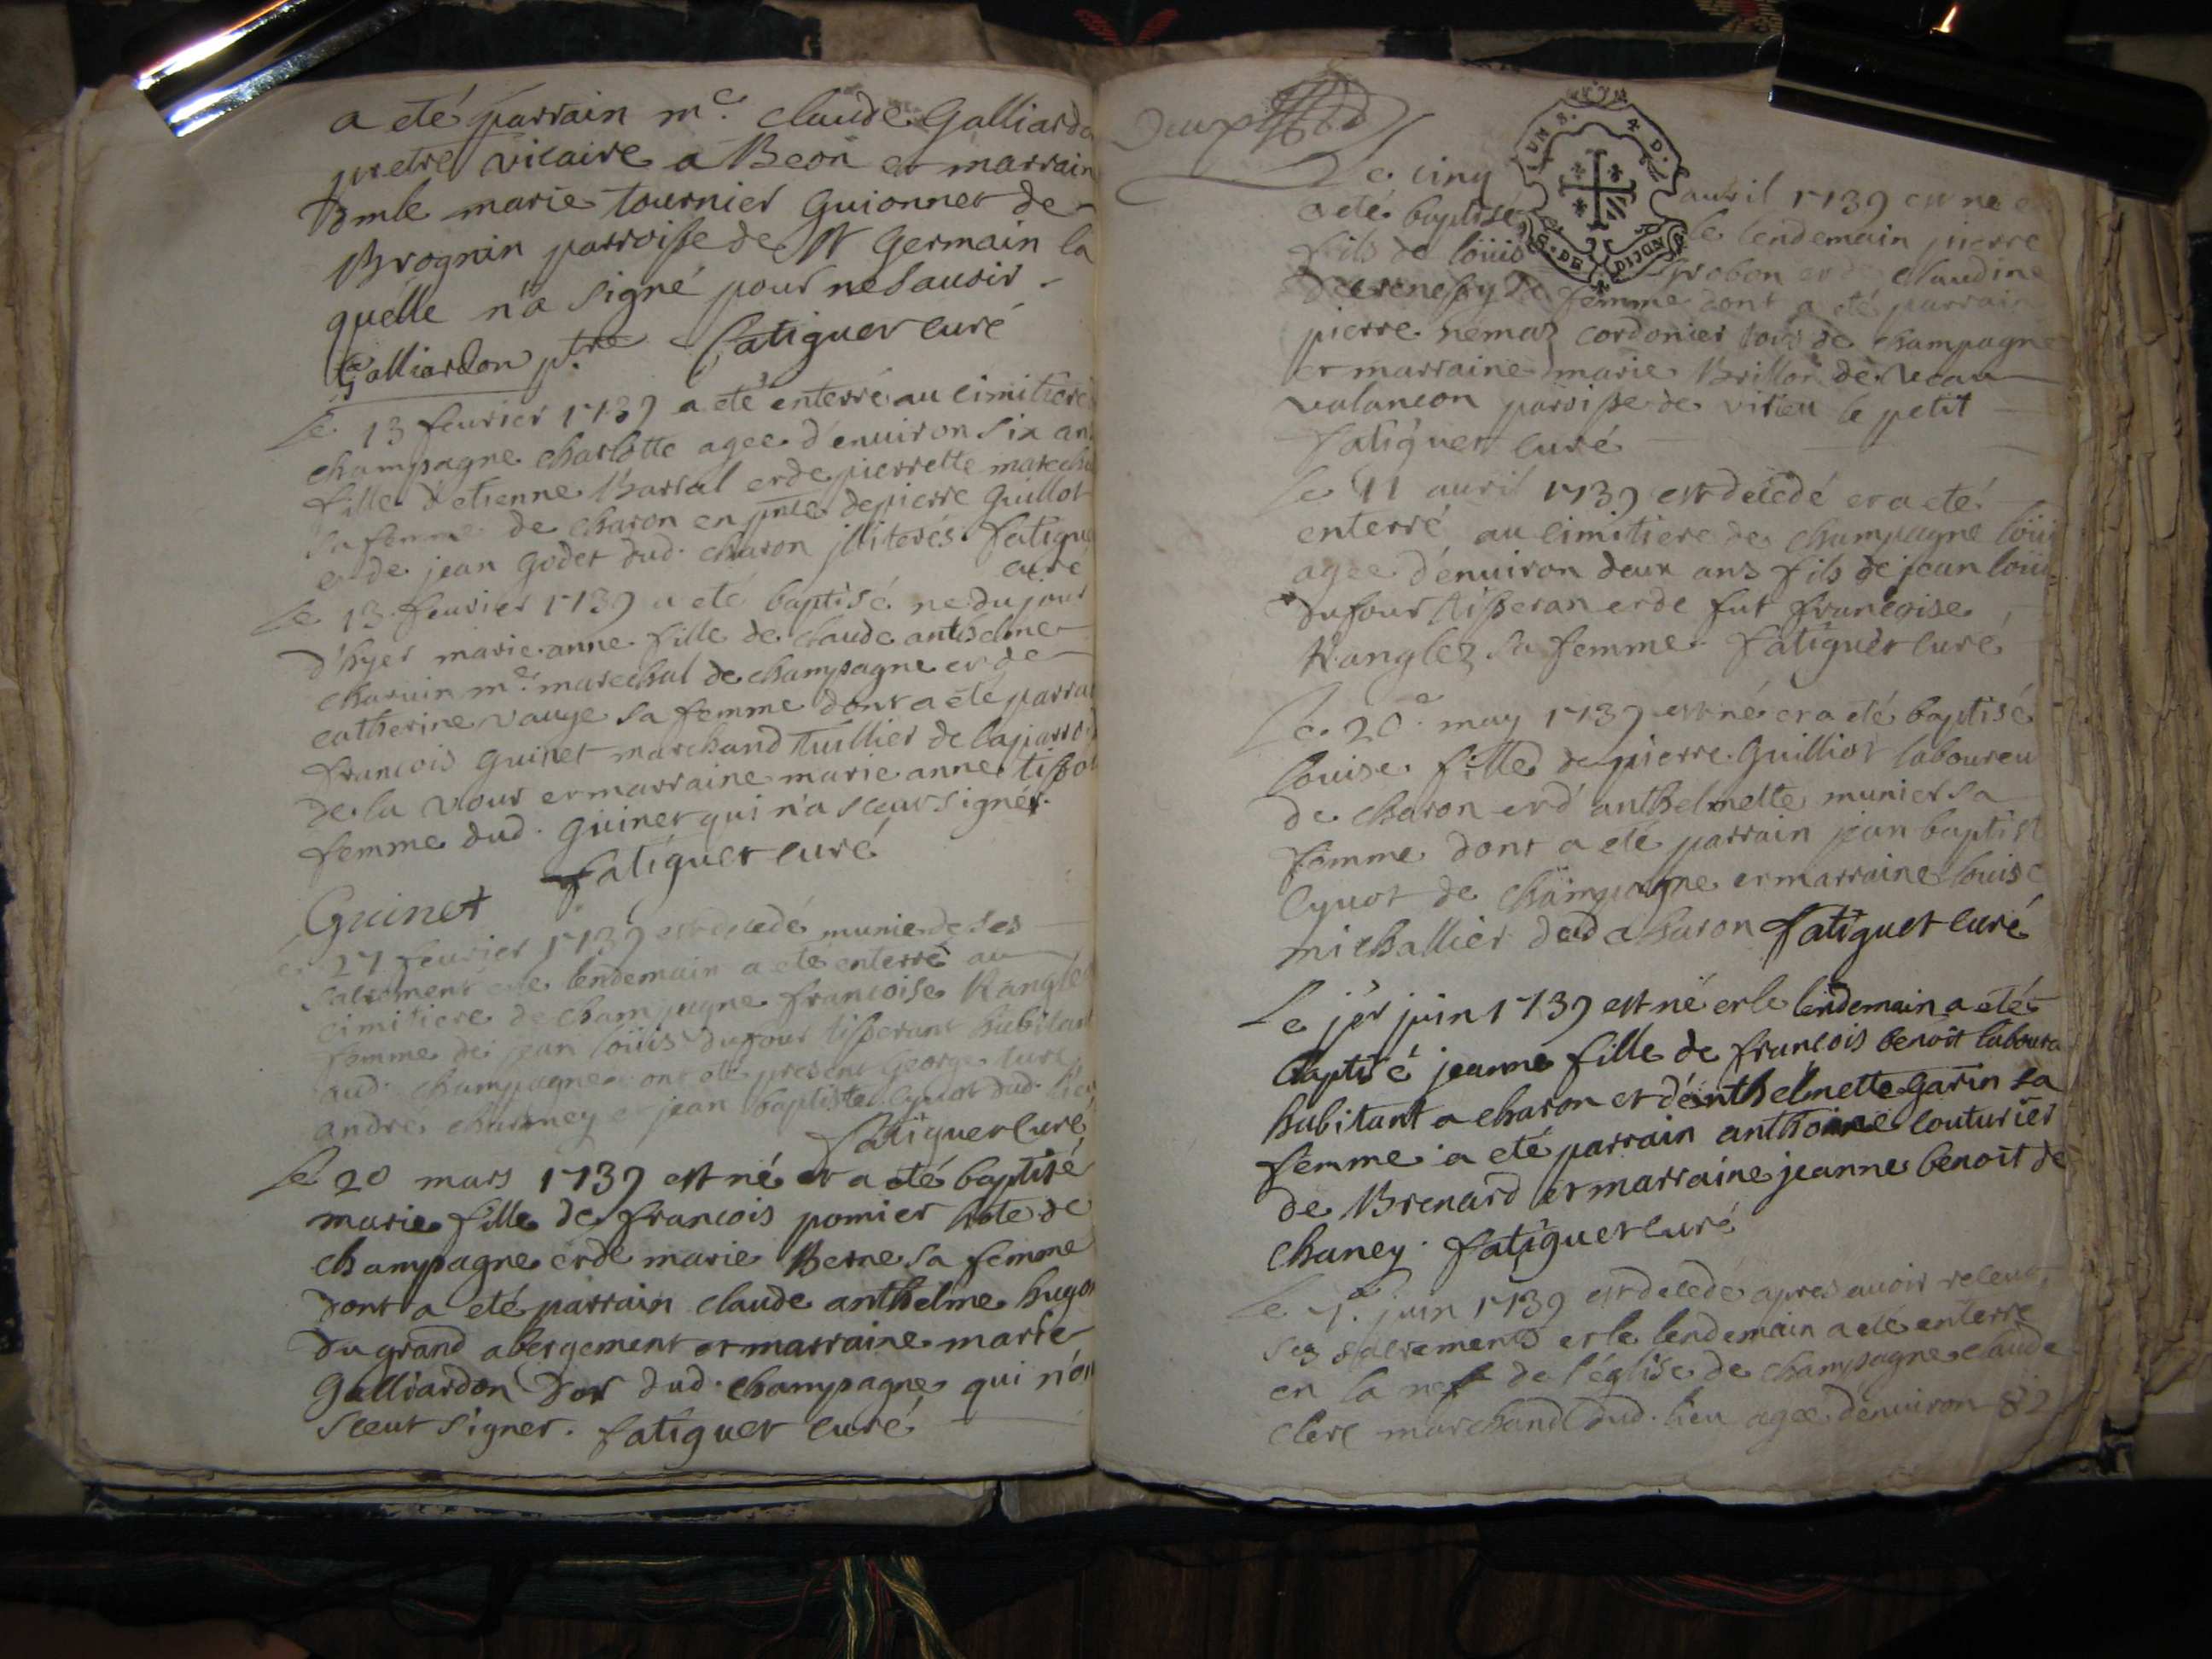 a eté parrain m.e claude Galliardo
pretre vicaire a Beon et marrain
Dmle marie tournier Guionnet de
Brognin parroisse de st Germain la
quelle n'a signé pour ne savoir.
Galliardon ptre fatiguet curé
le 13 feurier 1739 a eté enterré au cimitiere
champagne charlotte agee d'enuiron six ans
fille d'etienne Barral et de pierrette marecha
sa femme de charon en pnce de pierre Guillot
et de jean Godet dud. charon jlliterés fatigue
curé
le 13 feurier 1739 a eté baptisé ne du jour
d'hyer marie anne fille de claude anthelme
charuin m.e marechal de champagne et de
catherine vauge sa femme dont a eté parrai
francois Guinet marchand tuillier de la parro
de la vour et marraine marie anne tisso
femme dud. Guinet qui n'a sceut signér.
fatiguet curé
Guinet
le 27 feurier 1739 est decedé munie de ses
sacrement et le lendemain a eté enterré au
cimitiere de champagne francoise Rangle
femme de jean loüis dufour tisserant habitant
aud. champagne ont eté present George ture
andre charney et jean baptiste Cyuot dud. lieu
fatiguet curé
le 20 mars 1739 est né et a eté baptisé
marie fille de francois pomier hote de
champagne et de marie Berne sa femme
dont a eté parrain claude anthelme hugon
du grand abergement et marraine marie
Galliardon dud. champagne qui n'on
sceut signer. fatiguet curé
Deux
UN S. 4 D.
G. DE DIJON
Le cinq auril 1739 est ne et
a eté baptisé le lendemain pierre
fils de loüis grobon et de claudine
de femme dont a eté parrain
pierre nemoz cordonier tous de champagne
et marraine marie Brillon de
valancon paroisse de virieu le petit
fatiguet curé
le 11 auril 1739 est decedé et a eté
enterré au cimitiere de champagne loüi
agee d'enuiron deux ans fils de jean loüis
dufour tisseran et de fut francoise
Ranglez sa femme. fatiguet curé
Le 20e may 1739 est né et a eté baptisé
louise fille de pierre Guilliot laboureu
de charon et d'anthelmette munier sa
femme dont a eté parrain jean baptist
Cyuot de champagne et marraine louise
michallier dud charon fatiguet curé
Le jer juin 1739 est né et le lendemain a eté
baptisé jeanne fille de francois benoit laboura
habitant a charon et d'anthelmette Garin sa
femme a eté parrain anthoine couturier
de Brenard et marraine jeanne benoit de
chaney. fatiguet curé
le juin 1739 est decedé apres auoir receut
ses sacrements et le lendemain a eté enterré
en la nef de l'église de champagne claude
clerc marchand dud. lieu agee d'enuiron 82